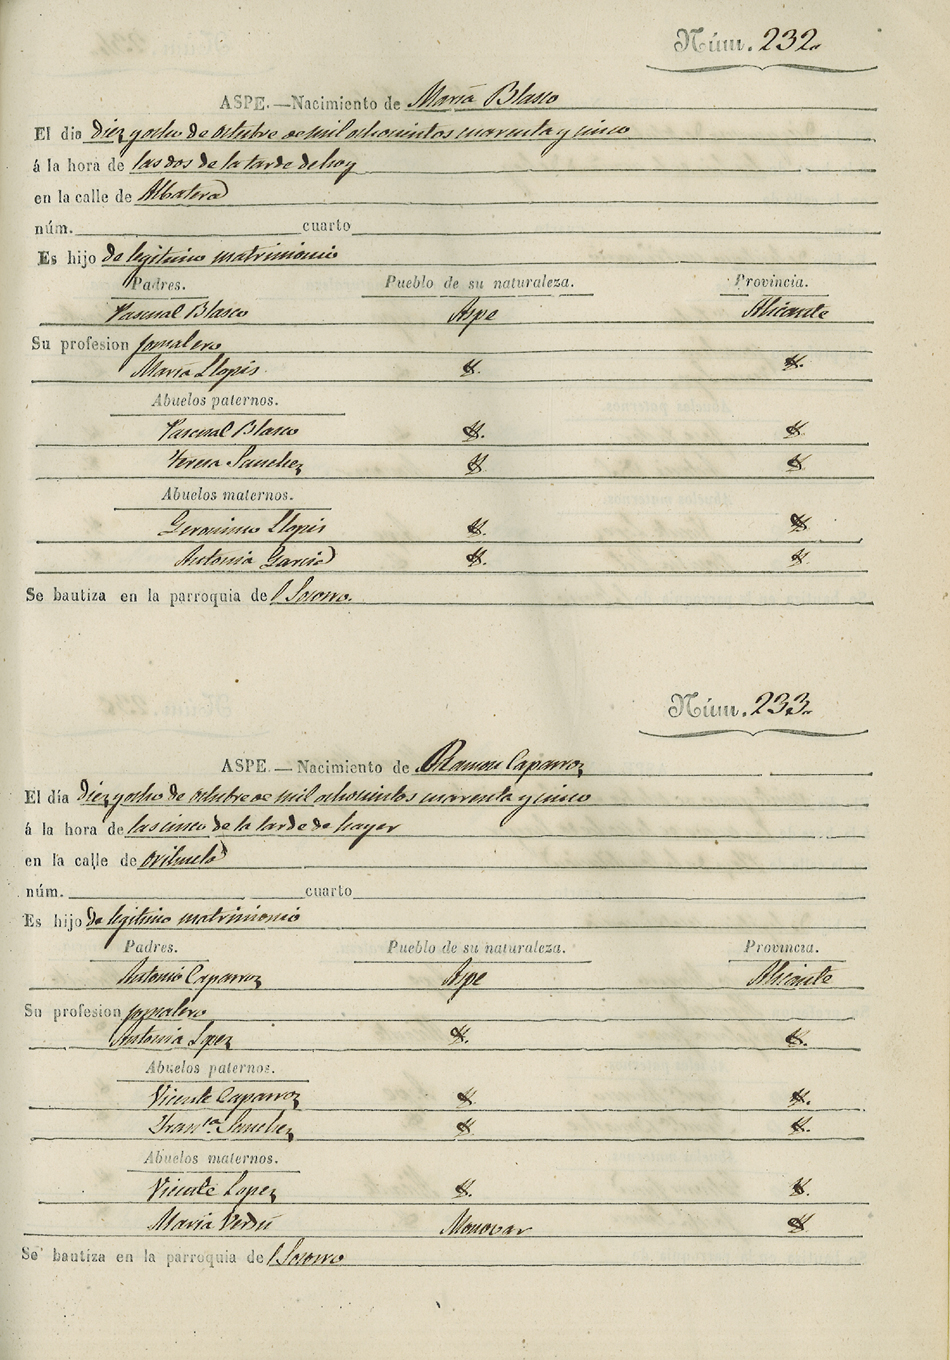 Núm. 232.
ASPE.—Nacimiento de María Blasco
El dia diez y ocho de octubre de mil ochocientos cuarenta y cinco
á la hora de las dos de la tarde de hoy
en la calle de Albatera
núm. cuarto
Es hijo de legitimo matrimonio
Padres. Pueblo de su naturaleza. Provincia.
Pascual Blasco Aspe Alicante
Su profesion jornalero
María Llopis
Abuelos paternos.
Pascual Blasco
Teresa Sanchez
Abuelos maternos.
Geronimo Llopis
Antonia Garcia
Se bautiza en la parroquia del Socorro.
Núm. 233.
ASPE.—Nacimiento de Ramon Caparroz
El día diez y ocho de octubre de mil ochocientos cuarenta y cinco
á la hora de las cinco de la tarde de hayer
en la calle de orihuela
núm. cuarto
Es hijo de legitimo matrimonio
Padres. Pueblo de su naturaleza. Provincia.
Antonio Caparroz Aspe Alicante
Su profesion jornalero
Antonia Lopez
Abuelos paternos.
Vicente Caparroz
Fran.ca Sanchez
Abuelos maternos.
Vicente Lopez
María Verdú Monovar
Se bautiza en la parroquia del Socorro